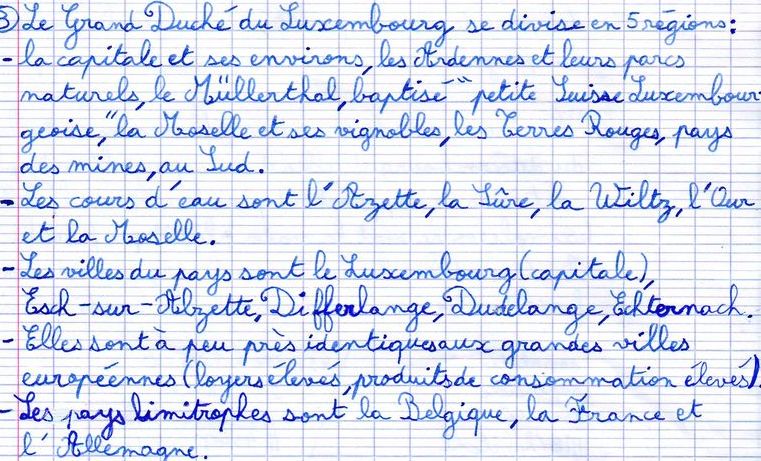 ③ Le Grand Duché du Luxembourg se divise en 5 régions :
- la capitale et ses environs, les Ardennes et leurs parcs
naturels, le Müllerthal, baptisé " petite Suisse Luxembour-
geoise," la Moselle et ses vignobles, les Terres Rouges, pays
des mines, au Sud.
- Les cours d'eau sont l'Azette, la Sûre, la Wiltz, l'Our
et la Moselle.
- Les villes du pays sont le Luxembourg (capitale),
Esch-sur-Alzette, Differlange, Dudelange, Echternach.
- Elles sont à peu près identiques aux grandes villes
européennes (loyers élevés, produits de consommation élevés).
- Les pays limitrophes sont la Belgique, la France et
l'Allemagne.